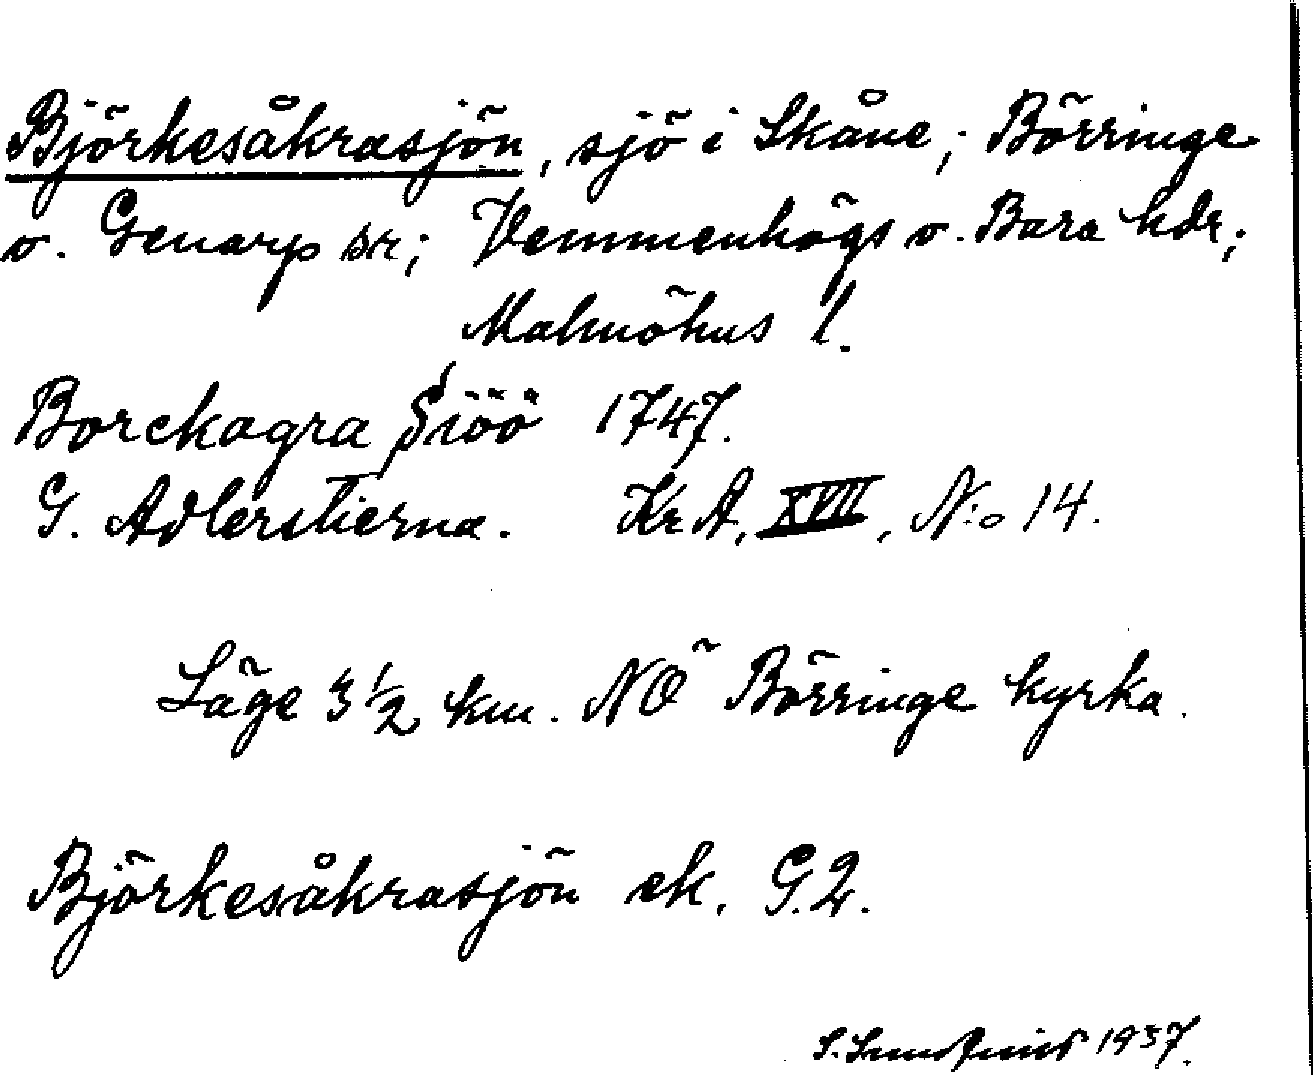 Björkesåkrasjön, sjö i Skåne; Börringe
o. Genarp sr; Vemmenhögs o. Bara hdr;
Malmöhus l.
Borckagra Siöö 1747.
G. Adlerstierna. KrA, XVII, N:o 14.
Läge 3 1/2 km. NÖ Börringe kyrka.
Björkesåkrasjön ek. G.2.
S. Lundquist 1937.